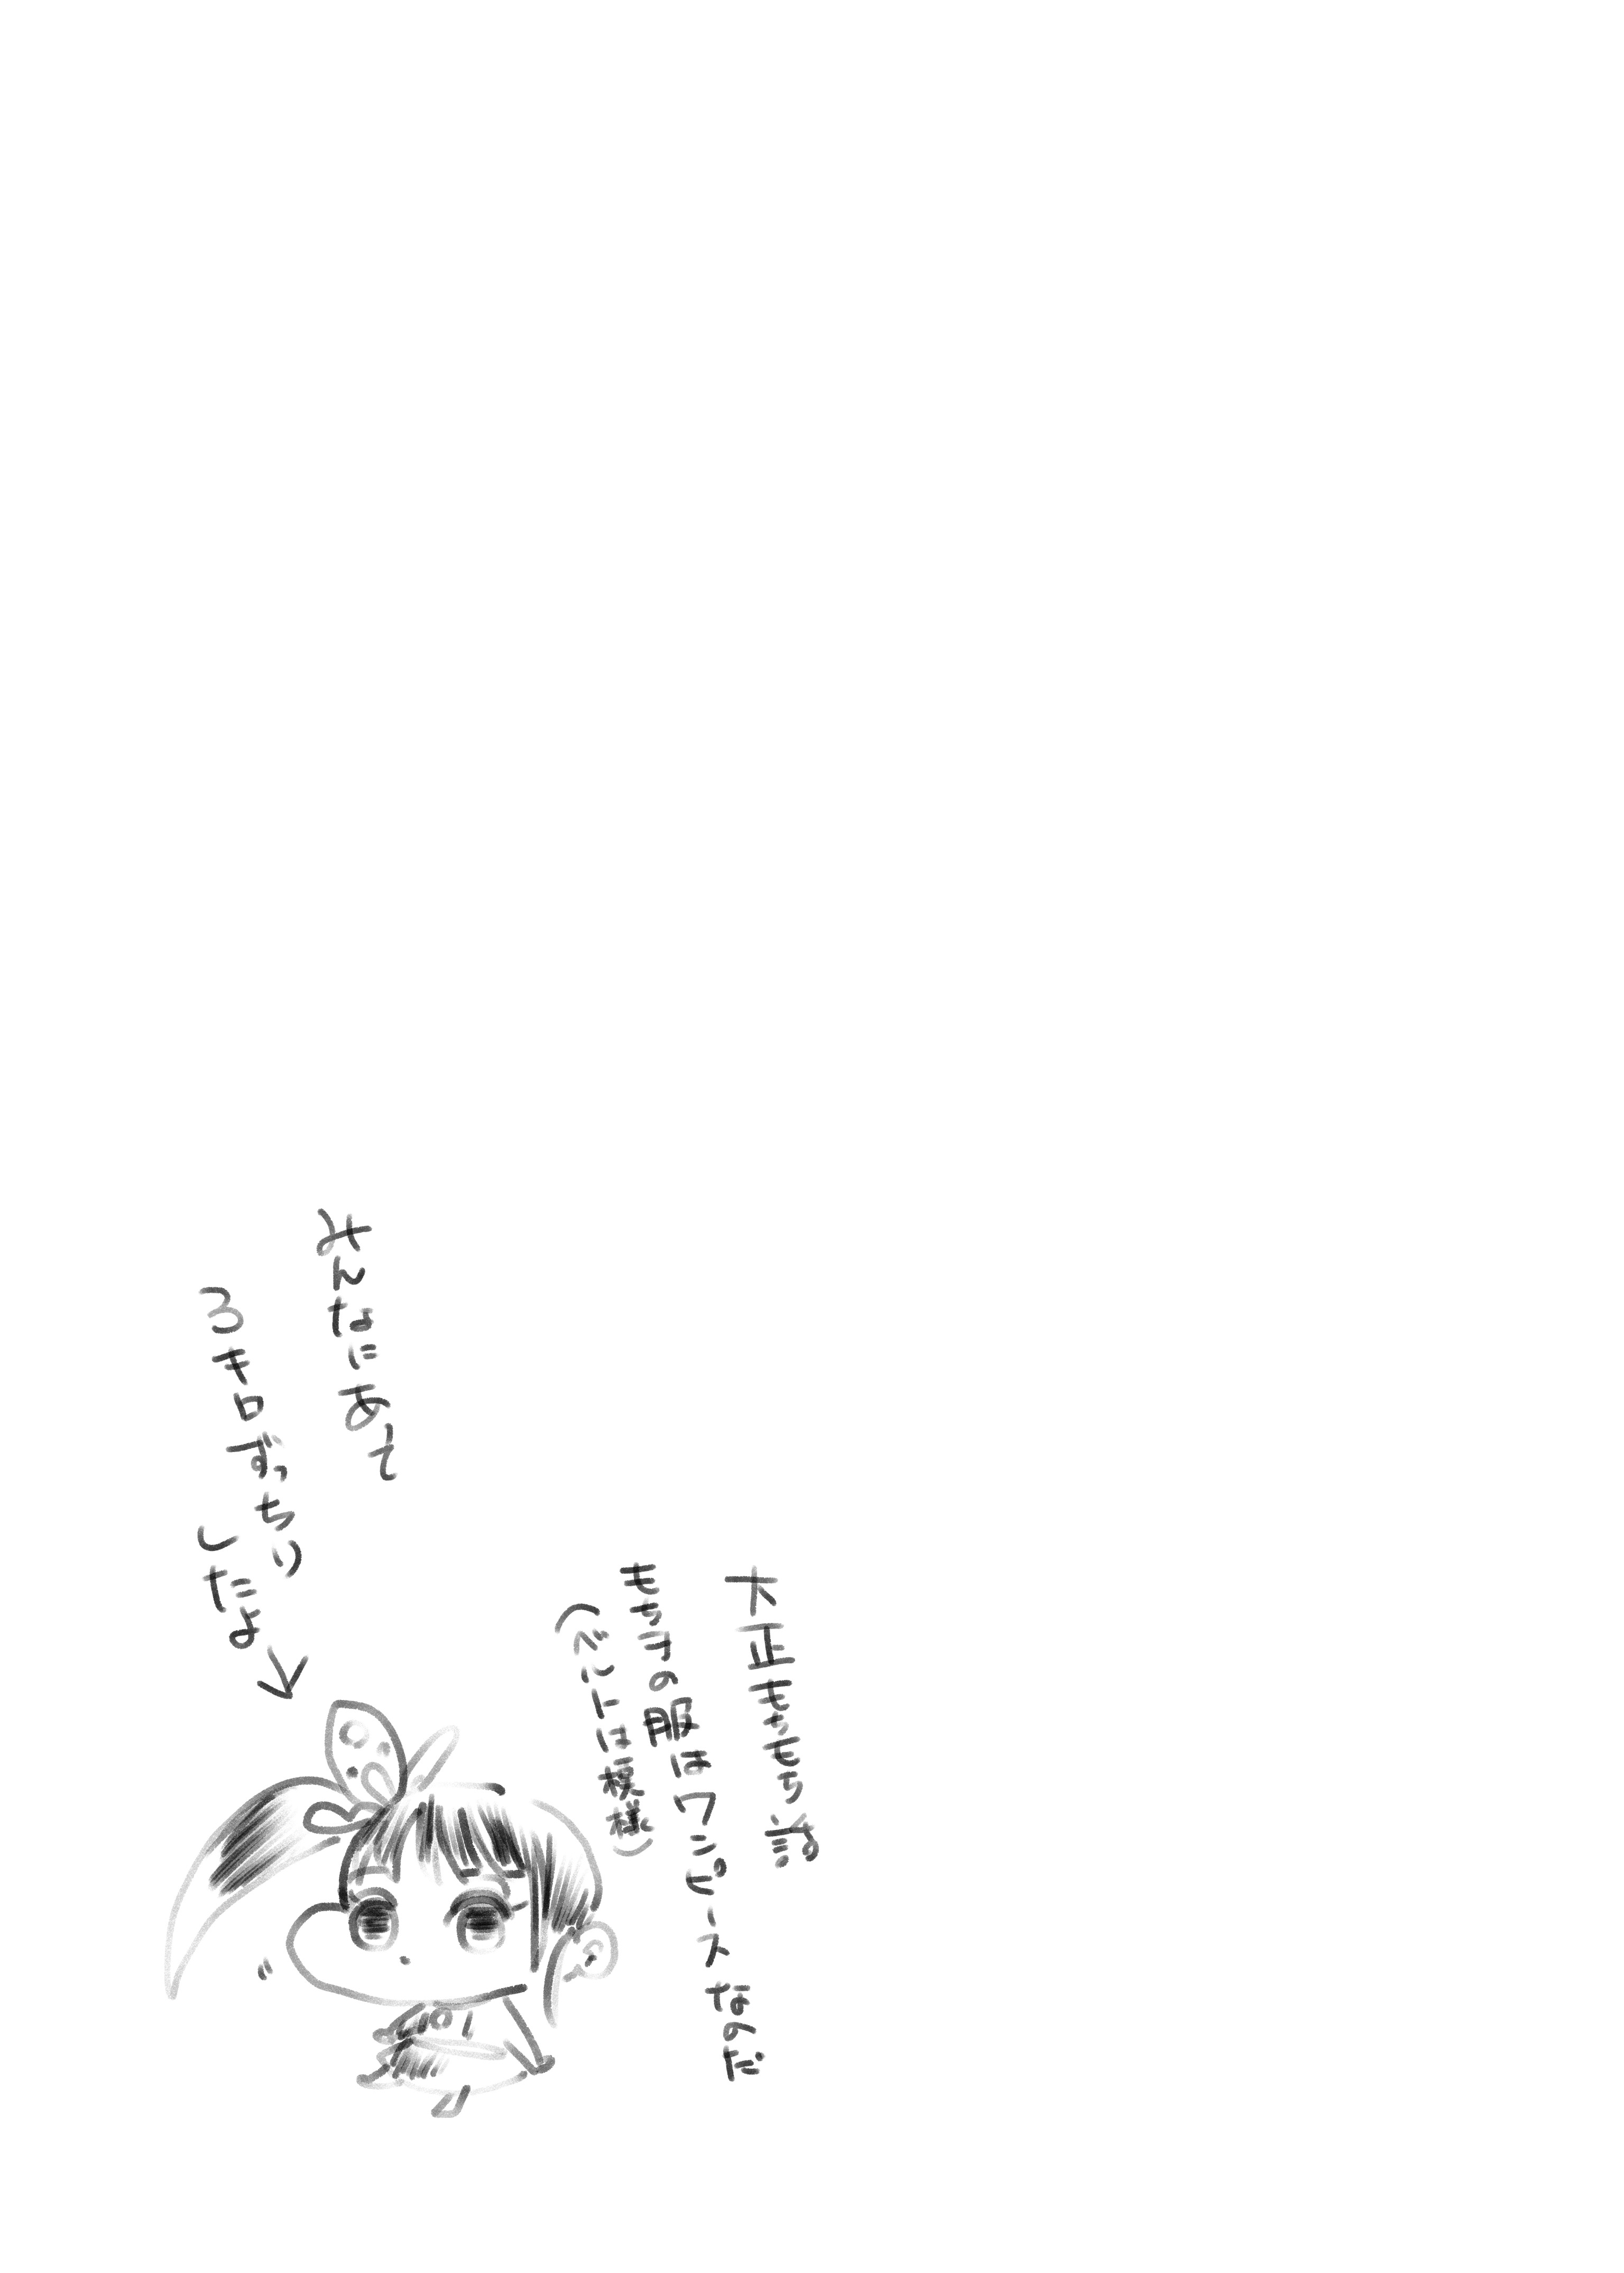 大正もちもち噂
もち子の服はワンピースなのだ
(ベルトは模様)
みんなにあて
3キロずっちり
したよ